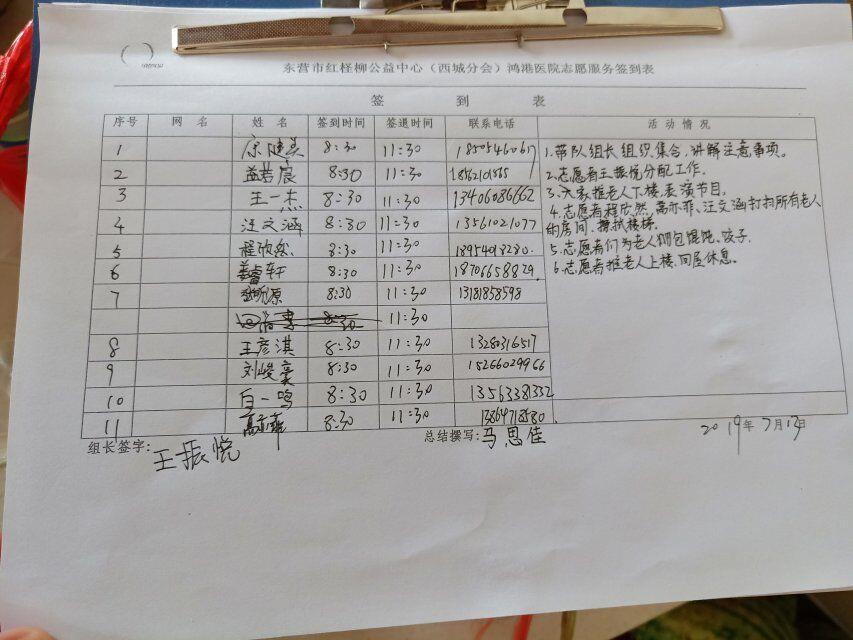 东营市红柽柳公益中心（西城分会）鸿港医院志愿服务签到表
签 到 表
序号 网 名 姓 名 签到时间 签退时间 联系电话 活 动 情 况
1 8:30 11:30 18505460617
2 8:30 11:30
3 王一杰 8:30 11:30 13406086662
4 汪文涵 8:30 11:30 13561021077
5 程欣然 8:30 11:30 18954018280
6 姜睿轩 8:30 11:30 18706658829
7 8:30 11:30 13181858598
8:30 11:30
8 王彦淇 8:30 11:30 13280316517
9 刘峻豪 8:30 11:30 15266029966
10 白一鸣 8:30 11:30 13563381332
11 高亦菲 8:30 11:30 13864718580
1.带队组长组织集合,讲解注意事项。
2.志愿者王振悦分配工作。
3.大家推老人下楼,表演节目。
4.志愿者程欣然、高亦菲、汪文涵打扫所有老人
的房间,擦拭楼梯。
5.志愿者们为老人们包馄饨、饺子.
6.志愿者推老人上楼,回屋休息。
组长签字: 王振悦 总结撰写: 马思佳 2019年7月13日